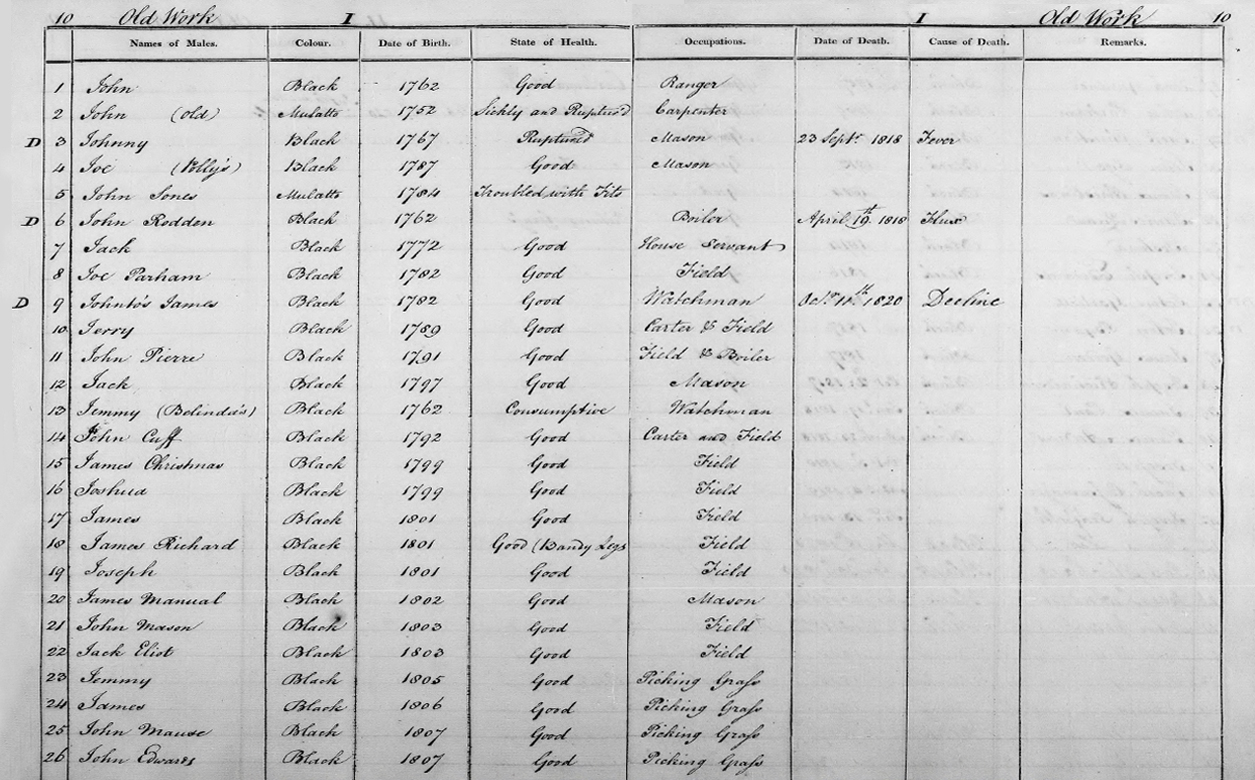 10 Old Work I I Old Work 10
Names of Males. Colour. Date of Birth. State of Health. Occupations. Date of Death. Cause of Death. Remarks.
1 John Black 1762 Good Ranger
2 John (old) Mulatto 1752 Sickly and Ruptured Carpenter
D 3 Johnny Black 1767 Ruptured Mason 23 Sept. 1818 Fever
4 Joe (Polly's) Black 1787 Good Mason
5 John Jones Mulatto 1784 Troubled with Fits
D 6 John Rodden Black 1762 Boiler April 19th. 1818 Flux
7 Jack Black 1772 Good House Servant
8 Joe Parham Black 1782 Good Field
D 9 James Black 1782 Good Watchman Octr. 1820 Decline
10 Jerry Black 1789 Good Carter & Field
11 John Pierre Black 1791 Good Field & Boiler
12 Jack Black 1797 Good Mason
13 Jemmy (Belinda's) Black 1762 Consumptive Watchman
14 John Cuff Black 1792 Good Carter and Field
15 James Christmas Black 1799 Good Field
16 Joshua Black 1799 Good Field
17 James Black 1801 Good Field
18 James Richard Black 1801 Good (Bandy Legs Field
19 Joseph Black 1801 Good Field
20 James Manual Black 1802 Good Mason
21 John Mason Black 1803 Good Field
22 Jack Eliot Black 1803 Good Field
23 Jemmy Black 1805 Good Picking Grass
24 James Black 1806 Good Picking Grass
25 John Mause Black 1807 Good Picking Grass
26 John Edwards Black 1807 Good Picking Grass